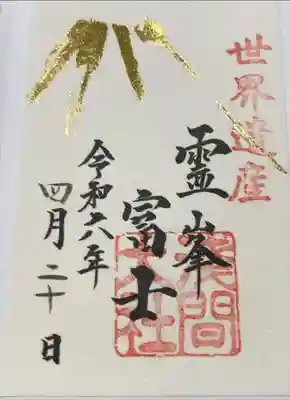 世界遺産
霊峯
富士
浅間
大社
令和六年
四月二十日